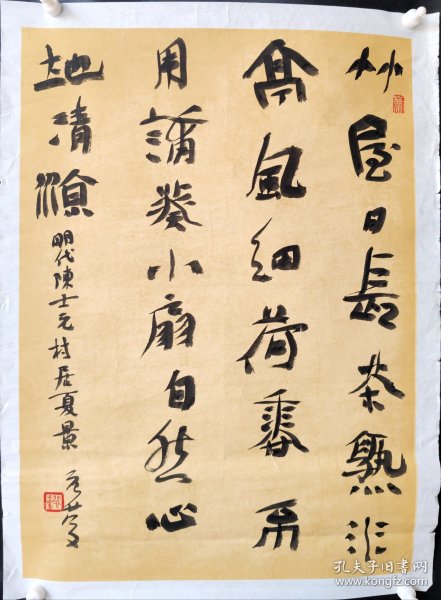 竹屋日長茶熟池
亭風細荷香不
用蒲葵小扇自然心
地清涼
明代陳士元村居夏景
孔夫子旧书网
www.kongfz.com